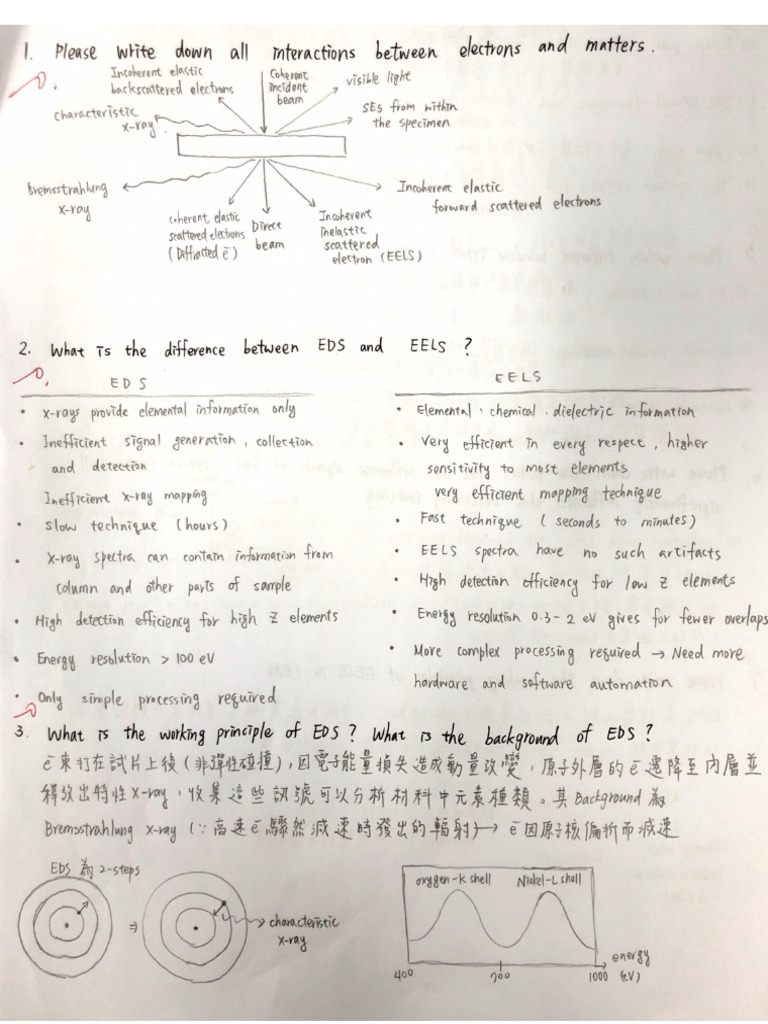 1. Please write down all interactions between electrons and matters.
Incoherent elastic
backscattered electrons
Coherent
incident
beam
visible light
characteristic
x-ray
SEs from within
the specimen
Bremsstrahlung
x-ray
coherent elastic
scattered electrons
(Diffracted e⁻)
Direct
beam
Incoherent
inelastic
scattered
electron (EELS)
Incoherent elastic
forward scattered electrons
2. What is the difference between EDS and EELS ?
EDS
• x-rays provide elemental information only
• Inefficient signal generation, collection
and detection
Inefficient x-ray mapping
• slow technique (hours)
• X-ray spectra can contain information from
column and other parts of sample
• High detection efficiency for high Z elements
• Energy resolution > 100 eV
• Only simple processing required
EELS
• Elemental、chemical、dielectric information
• Very efficient in every respect, higher
sensitivity to most elements
very efficient mapping technique
• Fast technique (seconds to minutes)
• EELS spectra have no such artifacts
• High detection efficiency for low Z elements
• Energy resolution 0.3-2 eV gives for fewer overlaps
• More complex processing required → Need more
hardware and software automation
3. What is the working principle of EDS ? What is the background of EDS ?
e⁻束打在試片上後(非彈性碰撞),因電子能量損失造成動量改變,原子外層的e⁻遷降至內層並
釋放出特性x-ray,收集這些訊號可以分析材料中元素種類。其Background為
Bremsstrahlung x-ray (∵高速e⁻驟然減速時發出的輻射) → e⁻因原子核偏折而減速
EDS為2-steps
⇒
characteristic
x-ray
oxygen-K shell
Nickel-L shell
energy
(eV)
400
700
1000